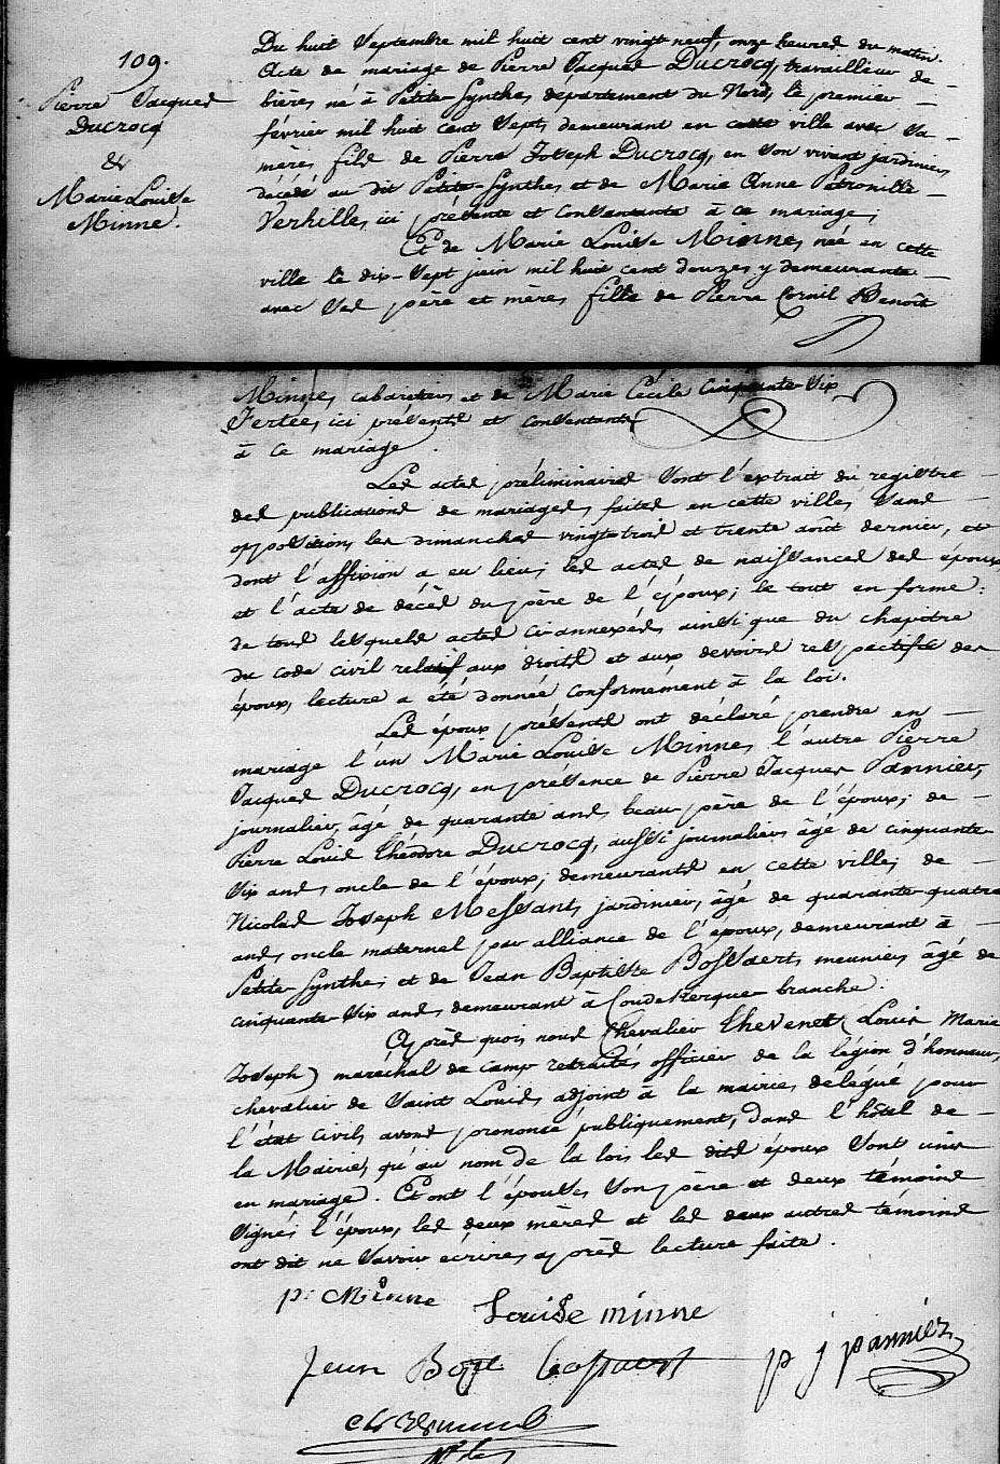 109.
Pierre Jacques
Ducrocq
&
Marie Louise
Minne.
Du huit Septembre mil huit cent vingt neuf, onze heures du matin.
Acte de mariage de Pierre Jacques Ducrocq, travailleur de
bières, né à Petite-Synthe, département du Nord, le premier
février mil huit cent Sept, demeurant en cette ville avec Sa
mère, fils de Pierre Joseph Ducrocq, en Son vivant jardinier,
décédé au dit Petite-Synthe, et de Marie Anne Pétronille
Verhille, ici présente et consentante à ce mariage;
Et de Marie Louise Minne, née en cette
ville le dix-Sept juin mil huit cent douze, y demeurante
avec Ses père et mère, fille de Pierre Cornil Benoît
Minne, cabaretier, et de Marie Cécile Cinquante-Six
Fertée, ici présents et consentants
à ce mariage.
Les actes préliminaires Sont l'extrait du registre
des publications de mariages, faites en cette ville, Sans
opposition, les dimanches vingt-trois et trente août dernier, et
dont l'affixion a eu lieu; les actes de naissances des époux
et l'acte de décès du père de l'époux; le tout en forme:
de tous lesquels actes ci-annexés, ainsi que du chapitre
du code civil relatif aux droits et aux devoirs respectifs des
époux, lecture a été donnée conformément à la loi.
Les époux présents ont déclaré prendre en
mariage l'un Marie Louise Minne, l'autre Pierre
Jacques Ducrocq, en présence de Pierre Jacques Pannier,
journalier, âgé de quarante ans, beau-père de l'époux; de
Pierre Louis Théodore Ducrocq, aussi journalier, âgé de cinquante-
Six ans, oncle de l'époux; demeurants en cette ville; de
Nicolas Joseph Messant, jardinier, âgé de quarante-quatre
ans, oncle maternel par alliance de l'époux, demeurant à
Petite-Synthe, et de Jean Baptiste Bossaert, meunier, âgé de
cinquante-Six ans, demeurant à Coudekerque-branche.
Après quoi, nous Chevalier Thevenet (Louis Marie
Joseph) maréchal de camp retraité, officier de la légion d'honneur,
chevalier de Saint Louis, adjoint à la mairie, délégué pour
l'état civil, avons prononcé publiquement, dans l'hôtel de
la Mairie, qu'au nom de la loi, les dits époux Sont unis
en mariage. Et ont l'épouse, Son père et deux témoins
Signé; l'époux, les deux mères et les deux autres témoins
ont dit ne Savoir écrire, après lecture faite.
p: Minne
Louise minne
Jean Bapt bossaert
p j pannier